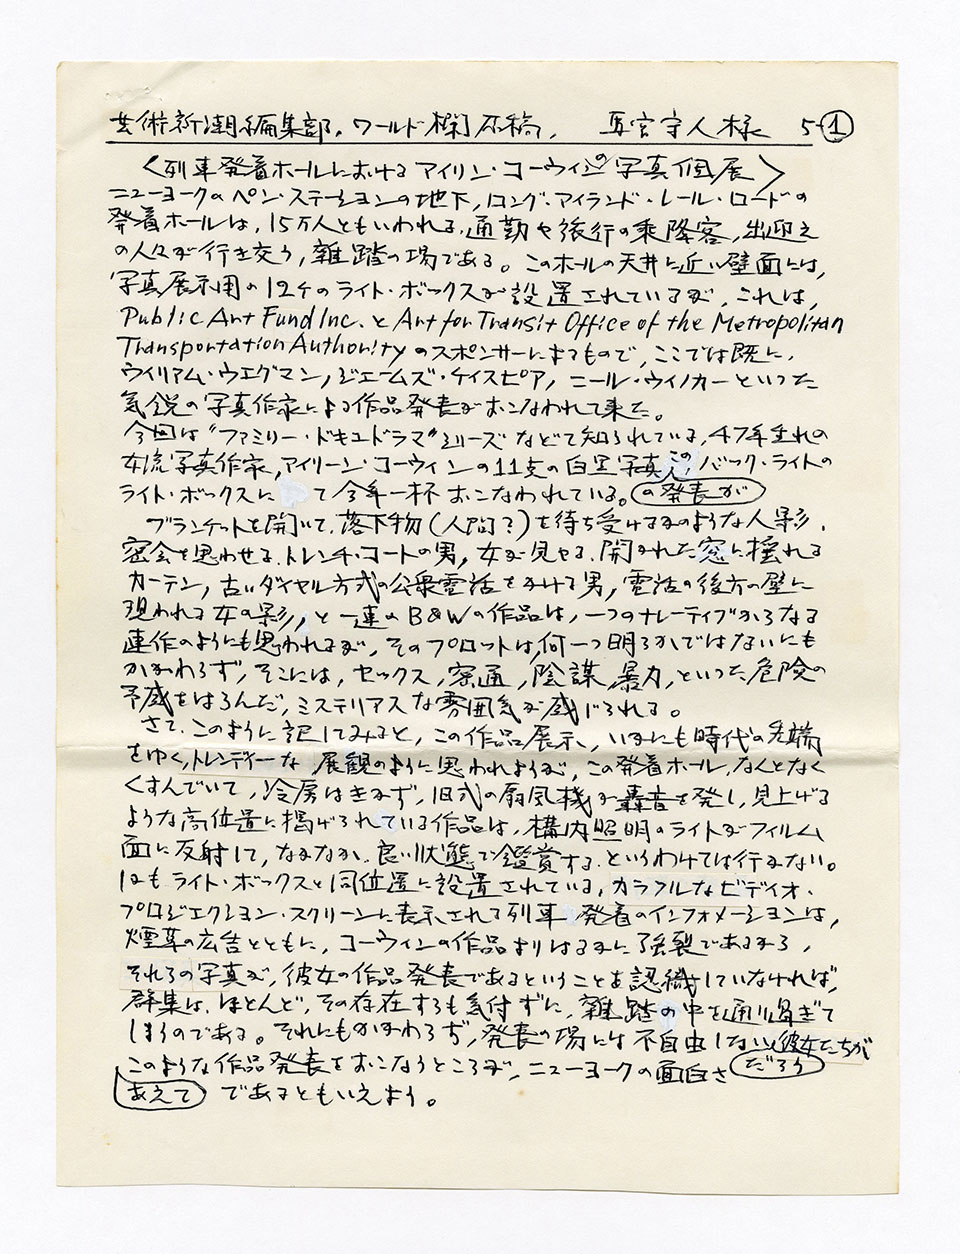 芸術新潮編集部、ワールド欄原稿、 宮守人様 5-①
〈列車発着ホールにおけるアイリン・コーウィンの写真個展〉
ニューヨークのペン・ステーションの地下，ロング・アイランド・レール・ロードの
発着ホールは，15万人ともいわれる通勤や旅行の乗降客，出迎え
の人々が行き交う，雑踏の場である。このホールの天井に近い壁面には，
写真展示用の12ケのライト・ボックスが設置されているが，これは，
Public Art Fund Inc. と Art for Transit Office of the Metropolitan
Transportation Authority のスポンサーによるもので，ここでは既に，
ウイリアム・ウエグマン，ジェームズ・ケイスビア，ニール・ウイノカーといった
気鋭の写真作家による作品発表がおこなわれて来た。
今回は“ファミリー・ドキュドラマ”シリーズなどで知られている，47年生れの
女流写真作家，アイリーン・コーウィンの11支の白黒写真 この バック・ライトの
ライト・ボックスに て今年一杯おこなわれている。 の発表が
ブランケットを開いて，落下物（人間？）を待ち受けるかのような人影，
密会を思わせるトレンチ・コートの男，女が見やる，開かれた窓に揺れる
カーテン，古いダイヤル方式の公衆電話をかける男，電話の後方の壁に
現われる女の影，と一連の B&W の作品は，一つのナレーティブからなる
連作のようにも思われるが，そのプロットは何一つ明らかではないにも
かかわらず，そこには，セックス，密通，陰謀，暴力，といった危険の
予感をはらんだ，ミステリアスな雰囲気が感じられる。
さて，このように記してみると，この作品展示，いかにも時代の先端
をゆく，トレンディーな 展観のように思われようが，この発着ホール，なんとなく
くすんでいて，冷房はきかず，旧式の扇風機が轟音を発し，見上げる
ような高位置に掲げられている作品は，構内照明のライトがフィルム
面に反射して，なかなか，良い状態で鑑賞する，というわけでは行かない。
しかもライト・ボックスと同位置に設置されている，カラフルなビディオ・
プロジェクション・スクリーンに表示される列車 発着のインフォメーションは，
煙草の広告とともに，コーウィンの作品よりはるかに強裂であるから，
それらの写真が，彼女の作品発表であるということを認識していなければ，
群集は，ほとんど，その存在すらも気付ずに，雑踏の中を通り過ぎて
しまうのである。それにもかかわらず，発表の場には不自由しない 彼女たちが
このような作品発表をおこなうところが，ニューヨークの面白さ だろう
あえて であるともいえよう。